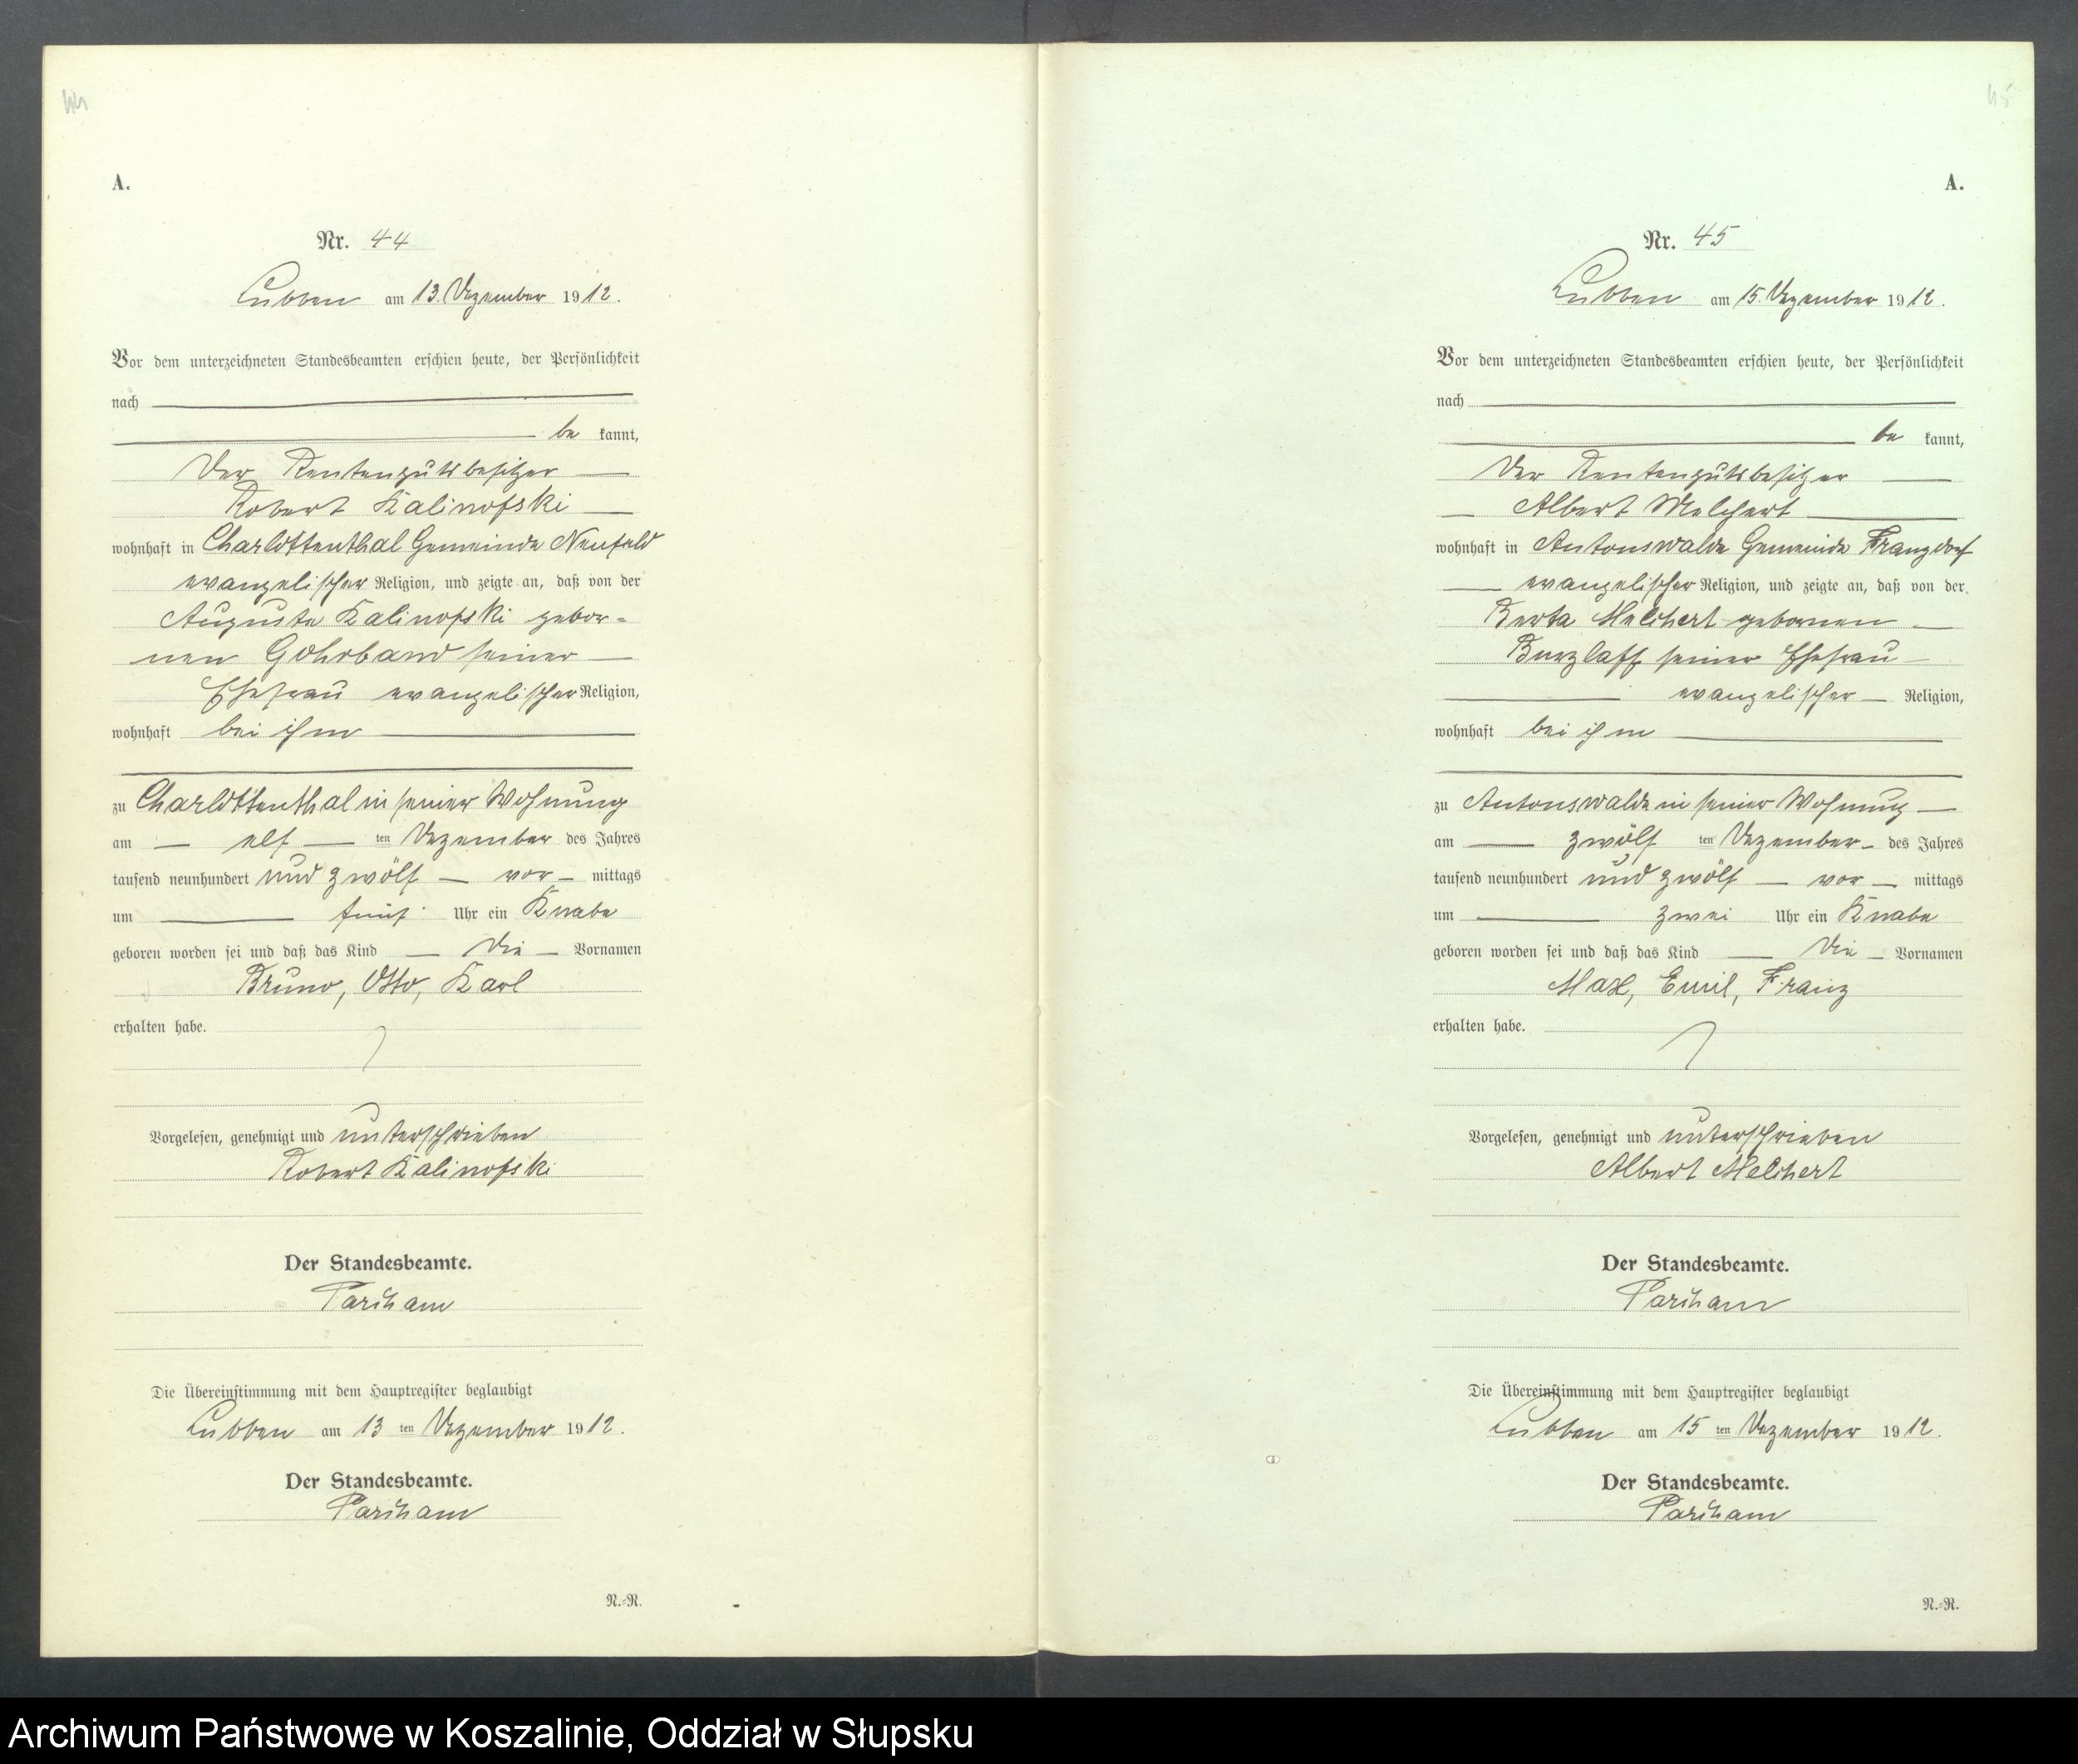 44
A.
Nr. 44
Lubben am 13. Dezember 1912.
Vor dem unterzeichneten Standesbeamten erschien heute, der Persönlichkeit
nach
be kannt,
der Rentengutsbesitzer
Robert Kalinofski
wohnhaft in Charlottenthal Gemeinde Neufeld
evangelischer Religion, und zeigte an, daß von der
Auguste Kalinofski gebor-
nen Gohrband seiner
Ehefrau evangelischer Religion,
wohnhaft bei ihm
zu Charlottenthal in seiner Wohnung
am elf ten Dezember des Jahres
tausend neunhundert und zwölf vor mittags
um fünf Uhr ein Knabe
geboren worden sei und daß das Kind die Vornamen
Bruno, Otto, Karl
erhalten habe.
Vorgelesen, genehmigt und unterschrieben
Robert Kalinofski
Der Standesbeamte.
Parcham
Die Übereinstimmung mit dem Hauptregister beglaubigt
Lubben am 13 ten Dezember 1912.
Der Standesbeamte.
Parcham
N.-R.
45
A.
Nr. 45
Lubben am 15. Dezember 1912.
Vor dem unterzeichneten Standesbeamten erschien heute, der Persönlichkeit
nach
be kannt,
der Rentengutsbesitzer
Albert Melchert
wohnhaft in Antonswalde Gemeinde Franzdorf
evangelischer Religion, und zeigte an, daß von der
Berta Melchert gebornen
Burzlaff seiner Ehefrau
evangelischer Religion,
wohnhaft bei ihm
zu Antonswalde in seiner Wohnung
am zwölf ten Dezember des Jahres
tausend neunhundert und zwölf vor mittags
um zwei Uhr ein Knabe
geboren worden sei und daß das Kind die Vornamen
Max, Emil, Franz
erhalten habe.
Vorgelesen, genehmigt und unterschrieben
Albert Melchert
Der Standesbeamte.
Parcham
Die Übereinstimmung mit dem Hauptregister beglaubigt
Lubben am 15 ten Dezember 1912.
Der Standesbeamte.
Parcham
N.-R.
Archiwum Państwowe w Koszalinie, Oddział w Słupsku